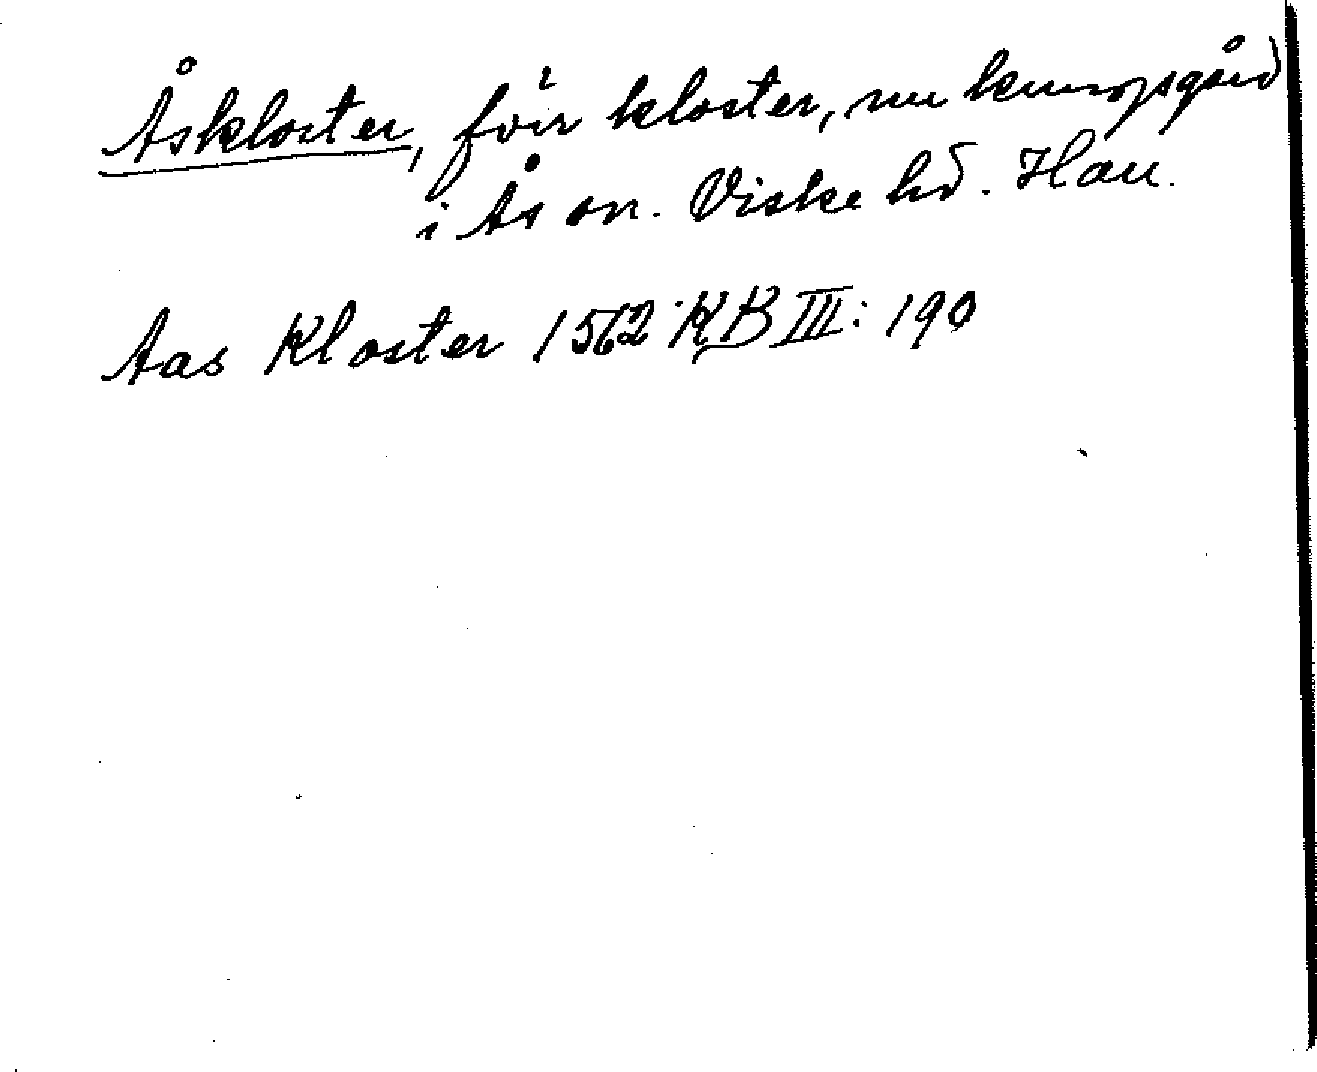 Åskloster, för kloster, nu kungsgård
i Ås sn. Viske hd. Hall.
Aas Kloster 1562 KB III: 190